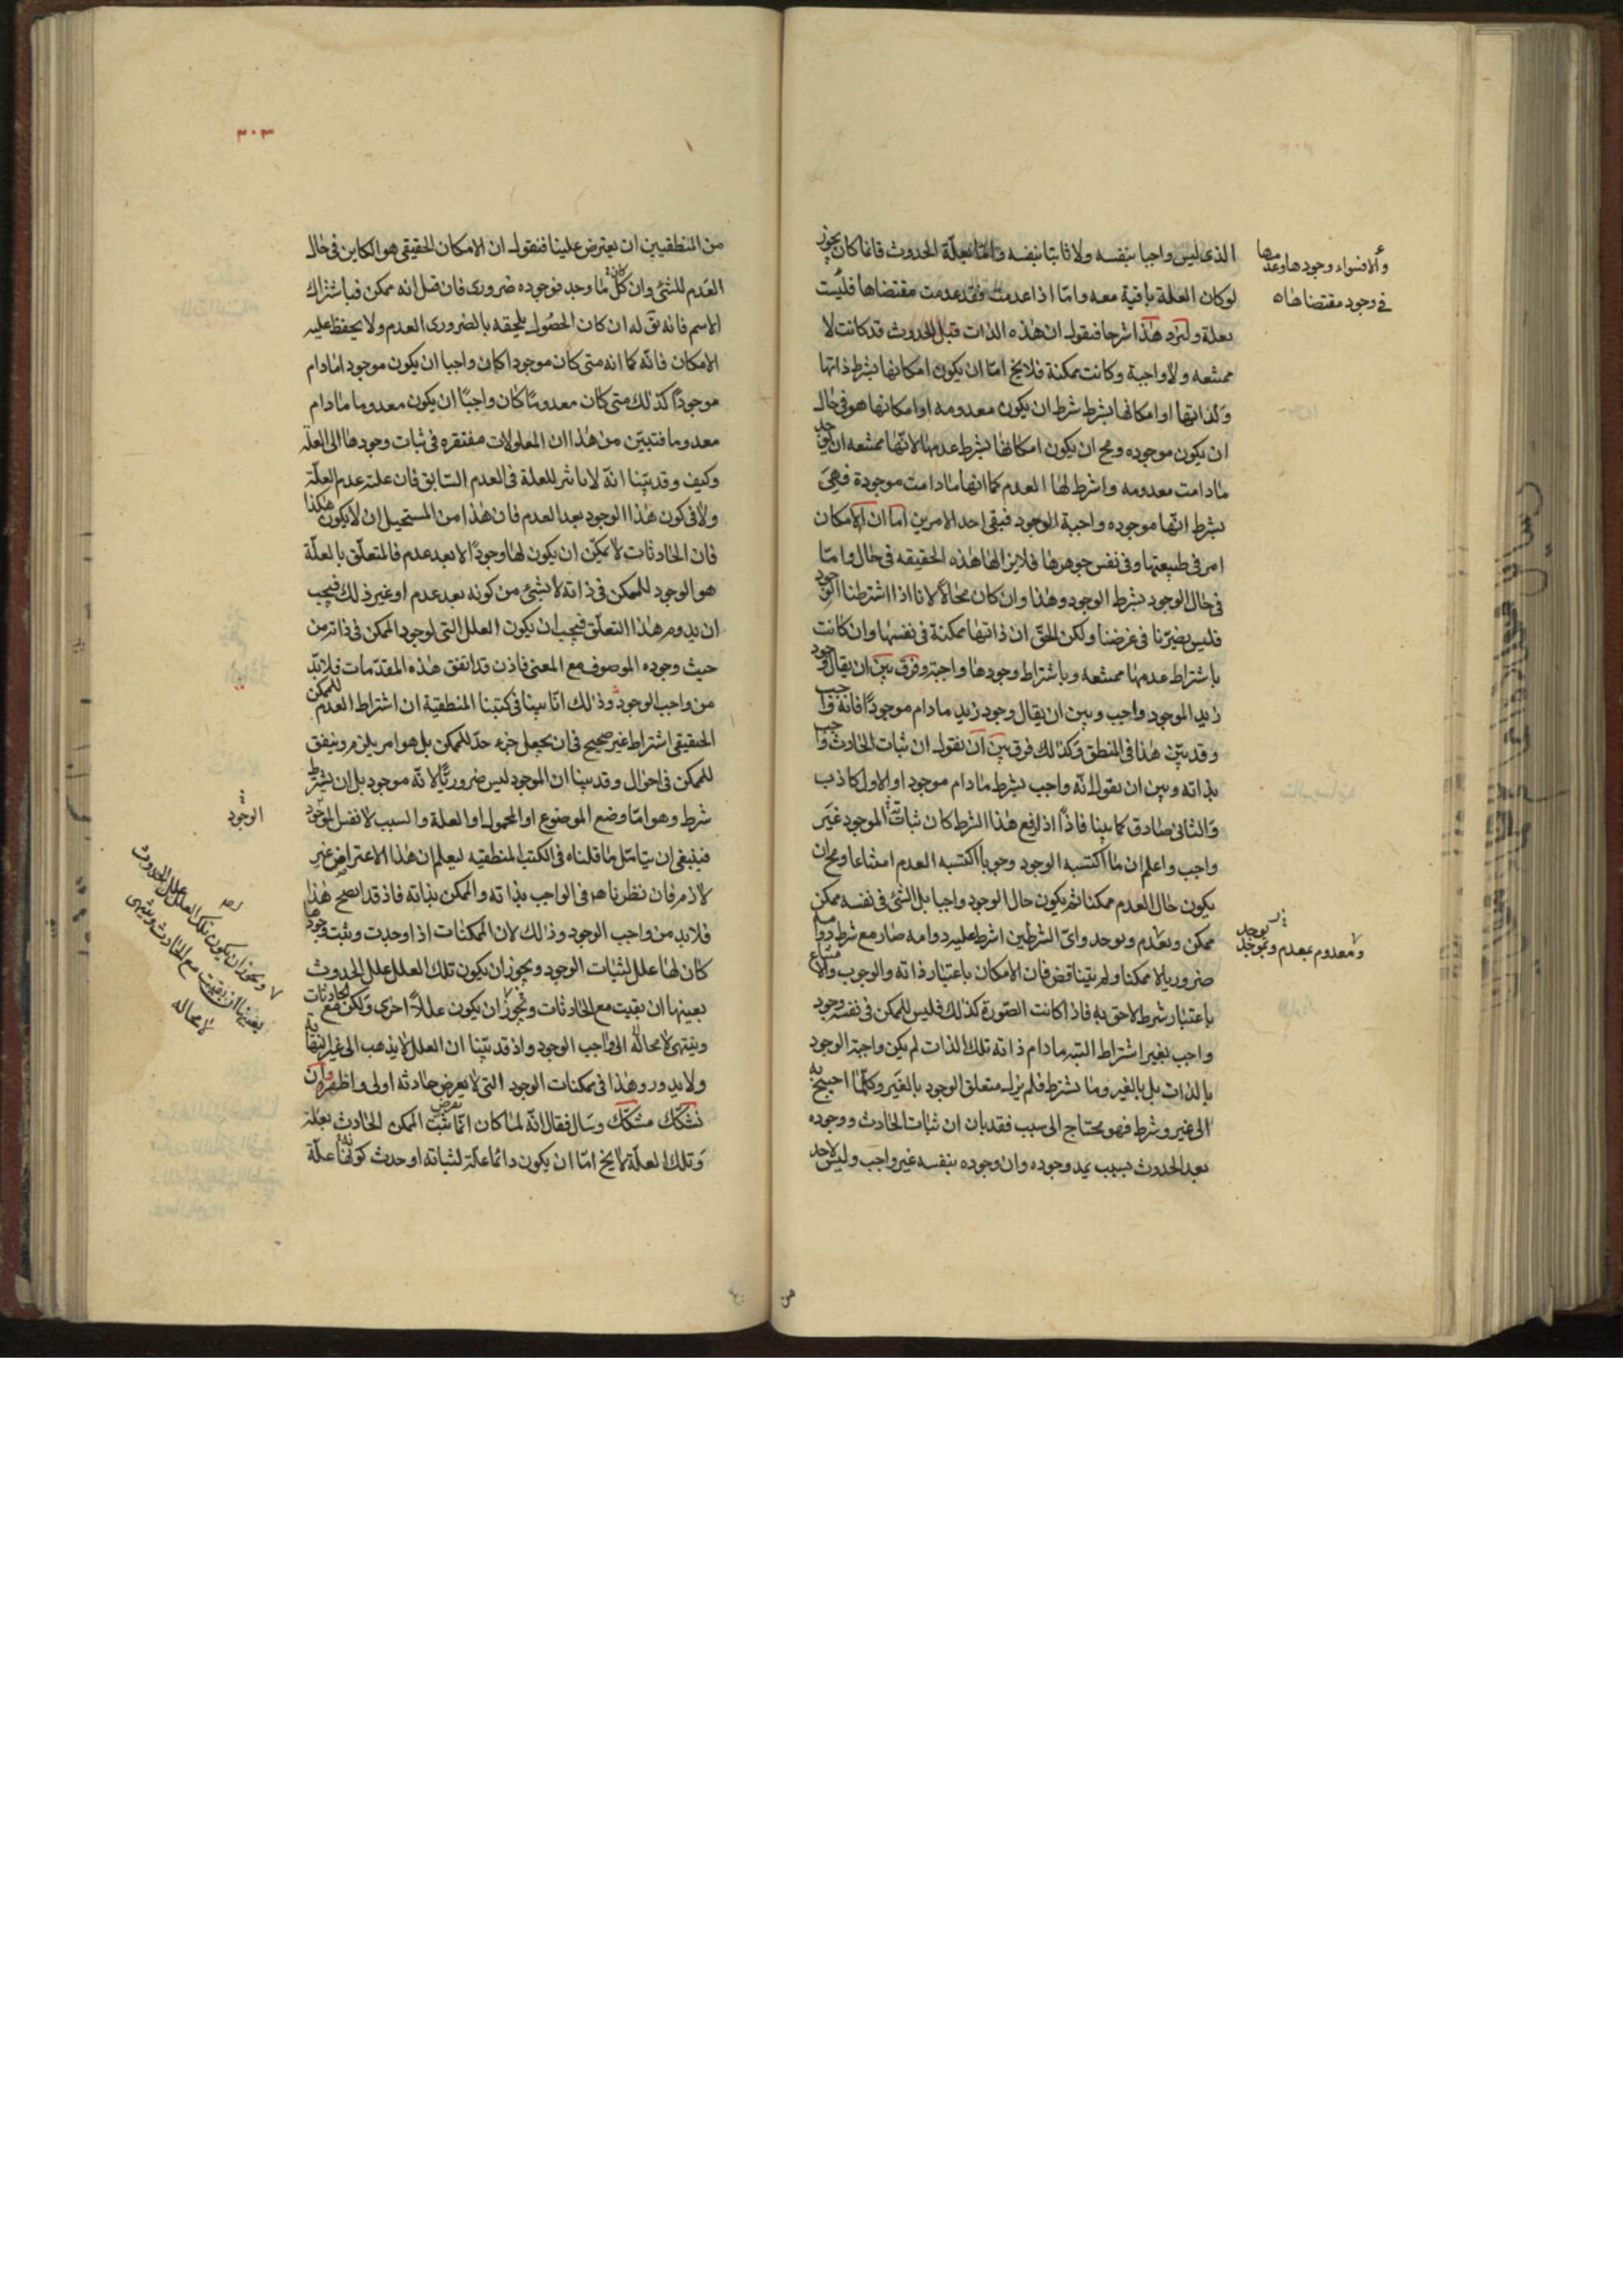 الذی لیس واجبا بنفسه ولا ثابتا بنفسه وانما بعلّة الحدوث فانما کان یجوز
لو کان العلة باقیة معه واما اذا عدمت فقد عدمت مقتضاها فلیست
بعلة ولنزد هذا شرحا فنقول ان هذه الذات قبل الحدوث قد کانت لا
ممتنعه ولا واجبة وکانت ممکنة فلا یخ امّا ان یکون امکانها بشرط ذاتها
ولذاتها او امکانها بشرط شرط ان یکون معدومه او امکانها هو فی حال
ان یکون موجوده ومح ان یکون امکانها بشرط عدمها لانها ممتنعه ان یوجد
مادامت معدومه واشرط لها العدم کما انها مادامت موجودة فهی
بشرط انّها موجوده واجبة الوجود فبقی احد الامرین اما ان الامکان
امر فی طبیعتها وفی نفس جوهرها فلا یزالها هذه الحقیقه فی حال واما
فی حال الوجود بشرط الوجود وهذا وان کان محالا لانا اذا اشترطنا الوجود
فلیس یضرّنا فی غرضنا ولکن الحقّ ان ذاتها ممکنة فی نفسها وان کانت
باشتراط عدمها ممتنعه وباشتراط وجودها واجبة وفرق بین ان یقال وجود
زید الموجود واجب وبین ان یقال وجود زید مادام موجودا فانه واجب
وقد بیّن هذا فی المنطق وکذلك فرق بین ان نقول ان ثبات الحادث واجب
بذاته وبین ان نقول انّه واجب بشرط مادام موجودا والاول کاذب
والثانی صادق کما بینا فاذا اذ رفع هذا الشرط کان ثبات الموجود غیر
واجب واعلم ان ما اکتسبه الوجود وجوبا اکتسبه العدم امتناعا ومح ان
یکون حال العدم ممکنا ثم یکون حال الوجود واجبا بل الشئ فی نفسه ممکن
ممکن ویعدم ویوجد وایّ الشرطین اشرط علیه دوامه صار مع شرط دوامه
ضروریا لا ممکنا ولم یتناقض فان الامکان باعتبار ذاته والوجوب والامتناع
باعتبار شرط لاحق به فاذا کانت الصّورة کذلك فلیس للممکن فی نفسه وجود
واجب بغیر اشتراط البته مادام ذاته تلك الذات لم یکن واجبة الوجود
بالذات بل بالغیر وما بشرط فلم یزل متعلق الوجود بالغیر وکلّما احتیج به
الی غیر وشرط فهو محتاج الی سبب فقد بان ان ثبات الحادث ووجوده
بعد الحدوث بسبب یمد وجوده وان وجوده بنفسه غیر واجب ولیس لاحد
والا فسواء وجودها وعدمها
فی وجود مقتضاها
ومعدوم بعدم
من
٣٠٣
من المنطقیین ان یعترض علینا فنقول ان الامکان الحقیقی هو الکاین فی حال
العدم للشئ وان کلّ ما وجد فوجوده ضروری فان قیل انه ممکن فباشتراك
الاسم فانه یق له ان کان الحصول یلحقه بالضروری العدم ولا یحفظ علیه
الامکان فانّه کما انه متی کان موجودا کان واجبا ان یکون موجودا مادام
موجودًا کذلك متی کان معدومًا کان واجبًا ان یکون معدوما مادام
معدوما فتبیّن من هذا ان المعلولات مفتقره فی ثبات وجودها الی العلة
وکیف وقد بیّنا انّه لا تاثیر للعلة فی العدم السّابق فان علته عدم العلّة
ولا فی کون هذا الوجود بعد العدم فان هذا من المستحیل ان لا یکون هکذا
فان الحادثات لا یمکن ان یکون لها وجودًا الا بعد عدم فالمتعلق بالعلّة
هو الوجود للممکن فی ذاته لا بشئ من کونه بعد عدم او غیر ذلك فیجب
ان یدوم هذا التعلّق فیجب ان یکون العلل التی لوجود الممکن فی ذاته من
حیث وجوده الموصوف مع المعنی فاذن قد اتفق هذه المقدّمات فلا بدّ
من واجب الوجود وذلك انّا بینا فی کتبنا المنطقیة ان اشتراط العدم للممکن
الحقیقی اشتراط غیر صحیح فی ان یجعل جزء حدّ للممکن بل هو امر یلزم ویتفق
للممکن فی احوال وقد بینا ان الموجود لیس ضروریًّا لانّه موجود بل ان یشترط
شرط وهو امّا وضع الموضوع او المحمول او العلة والسبب لا نفس الوجود
فینبغی ان یتامّل ما قلناه فی الکتب المنطقیه لیعلم ان هذا الاعتراض غیر
لازم فان نظرنا هو فی الواجب بذاته والممکن بذاته فاذ قد صح هذا
فلا بد من واجب الوجود وذلك لان الممکنات اذا وجدت وثبت وجودها
کان لها علل لثبات الوجود ویجوز ان یکون تلك العلل علل الحدوث
بعینها ان بقیت مع الحادثات ویجوز ان یکون عللاً اخری ولکن مع الحادثات
وینتهی لا محالة الی واجب الوجود واذ قد بیّنا ان العلل لا یذهب الی غیر النهایة
ولا یدور وهذا فی ممکنات الوجود التی لا یعرض حادثه اولی واظهر وان
تشکّك مشکّك وسال فقال انّه لما کان انّما ثبت الممکن الحادث بعلة
وتلك العلّة لا یخ امّا ان یکون دائما علّة لثباته او حدث کونها علّة
الوجود
ویجوز ان یکون تلك العلل علل الحدوث
بعینها ان بقیت مع الحادث وینتهی
لا محاله